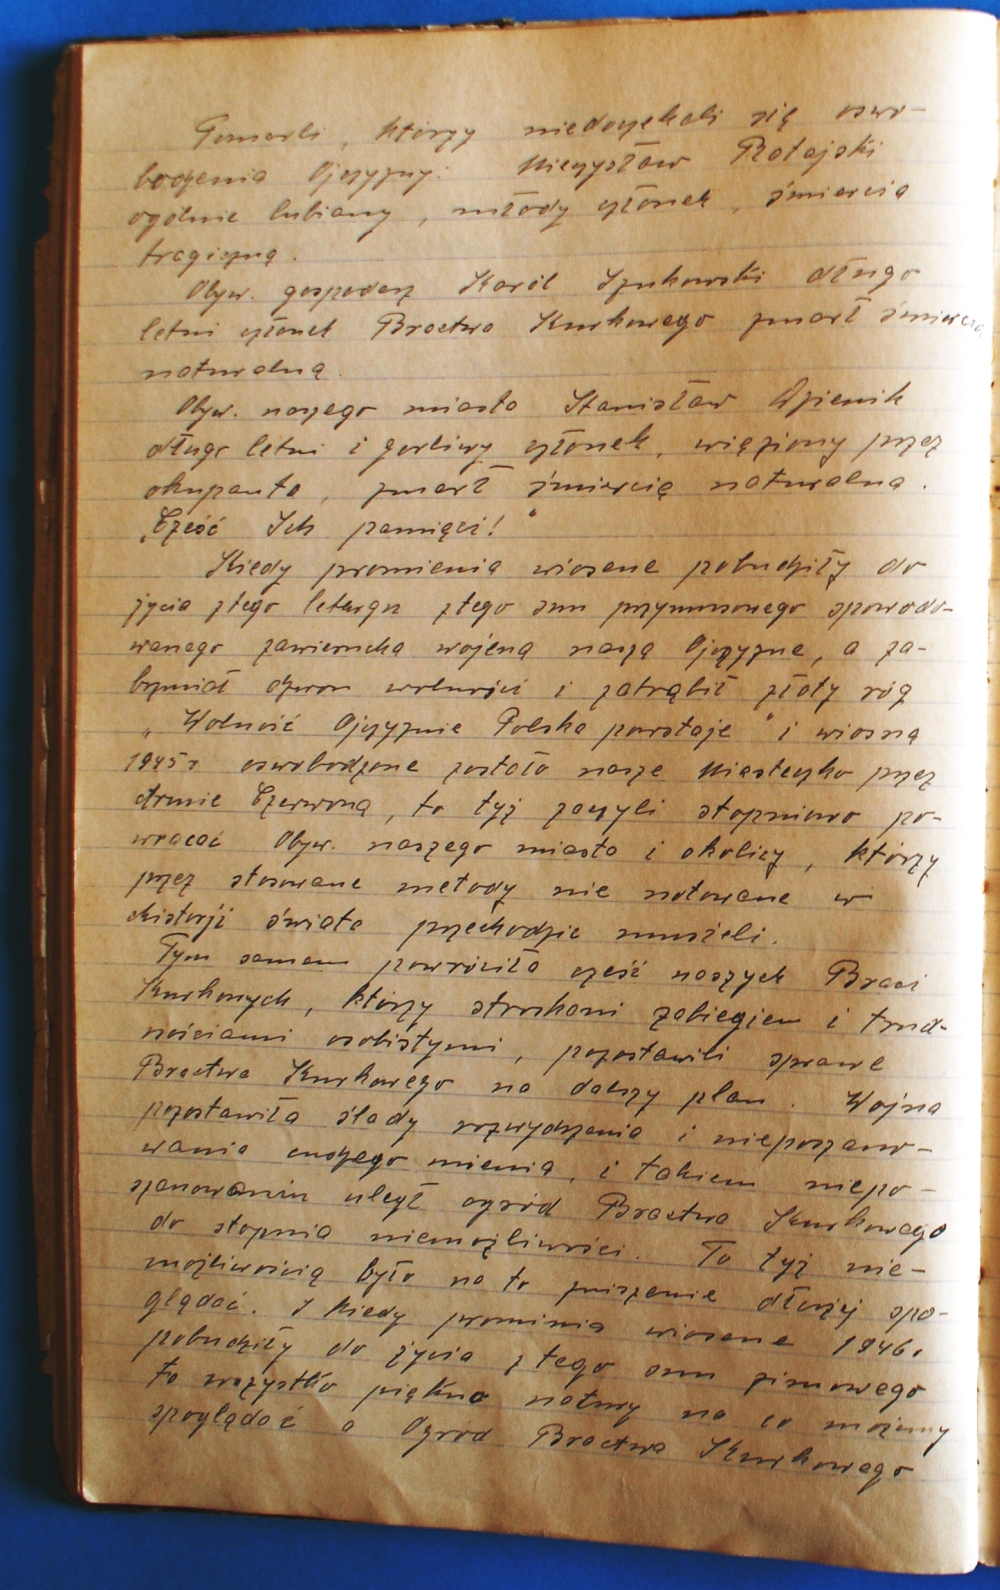 Pomarli, którzy niedoczekali się oswo-
bodzenia Ojczyzny: Mieczysław Ratajski
ogólnie lubiany, młody członek, śmiercią
tragiczną.
Obyw. gospodarz Karól Szukowski długo
letni członek Bractwa Kurkowego zmarł śmiercią
naturalną.
Obyw. naszego miasta Stanisław
długo letni i gorliwy członek, więziony przez
okupanta, zmarł śmiercią naturalną.
„Cześć Ich pamięci!"
Kiedy promienia wiosene pobudziły do
życia ztego letargu ztego snu przymusonego spowodo-
wanego zawierucha wojeną naszą Ojczyzne, a za-
brzmiał dzwon wolności i zatrąbił złoty róg
„Wolność Ojczyznie Polska powstaje" i wiosną
1945 r oswobodzone zostało nasze Miasteczko przez
Armie Czerwoną, to tyż zaczyli stopniowo po-
wracać Obyw. naszego miasta i okolicy, którzy
przez stosowane metody nie notowane w
historji świata przechodzic musieli.
Tym samem powróciła cześć naszych Braci
Kurkowych, którzy stroskani zabiegiem i trud-
nościami osobistymi, pozostawili sprawe
Bractwa Kurkowego na dalszy plan. Wojna
pozostawiła ślady rozwydrzenia i nieposzano-
wania cudzego mienia, i takiem niepo-
szanowaniu uległ ogród Bractwa Kurkowego
do stopnia niemożliwości. To tyż nie-
możliwością było na to zniszenie dłużej spo-
glądać. I kiedy prominia wiosene 1946r
pobudziły do życia z tego snu zimowego
to wszystko piękno natury na co możemy
spoglądać a Ogród Bractwa Kurkowego